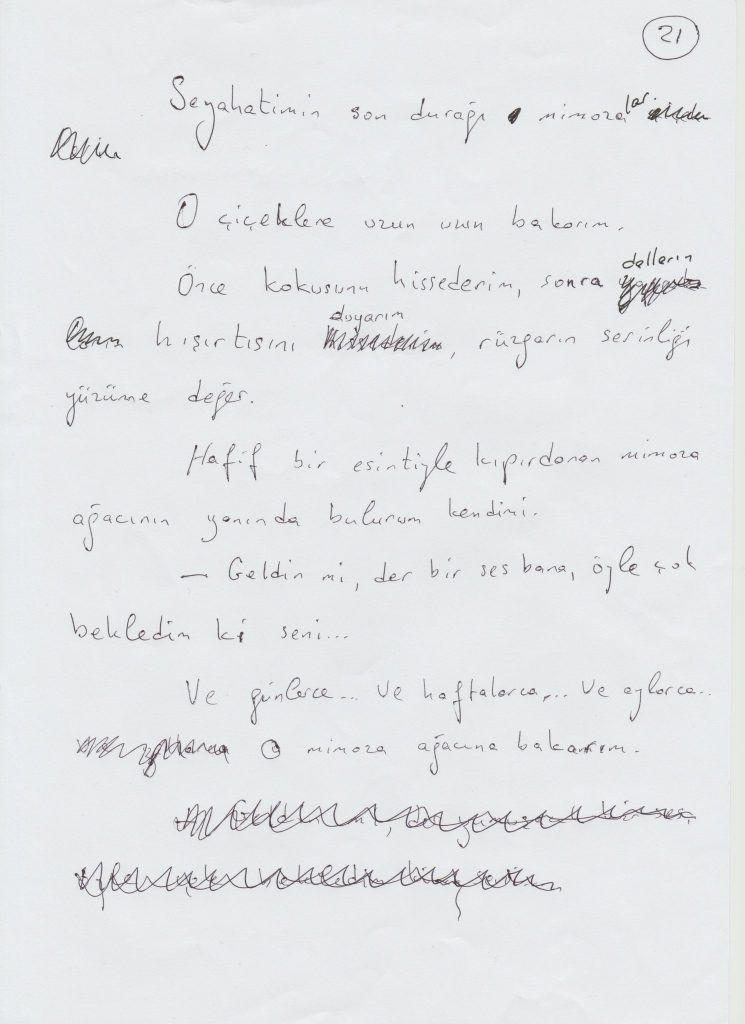 21
Seyahatimin son durağı mimozalar.
O çiçeklere uzun uzun bakarım.
Önce kokusunu hissederim, sonra dalların
hışırtısını duyarım, rüzgarın serinliği
yüzüme değer.
Hafif bir esintiyle kıpırdanan mimoza
ağacının yanında bulurum kendimi.
— Geldin mi, der bir ses bana, öyle çok
bekledim ki seni...
Ve günlerce... Ve haftalarca... Ve aylarca..
O mimoza ağacına bakarım.